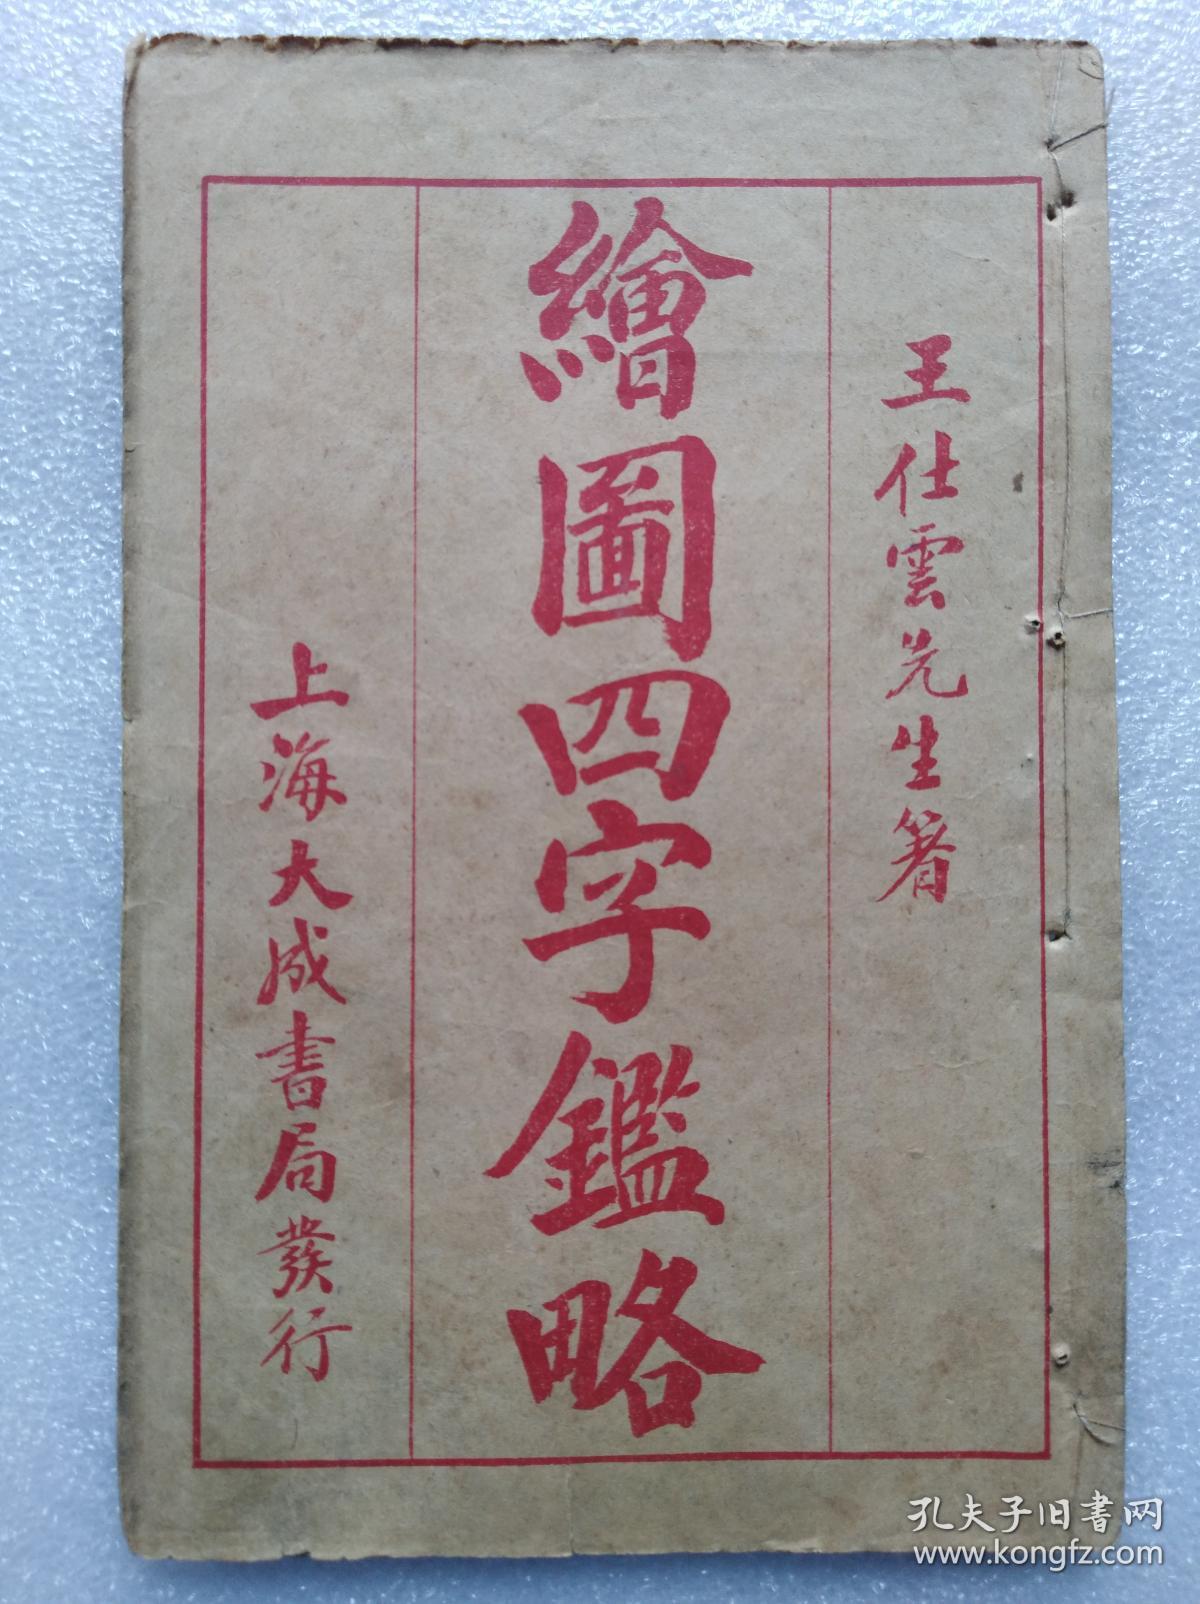 王仕雲先生著
繪圖四字鑑略
上海大成書局發行
孔夫子旧书网
www.kongfz.com